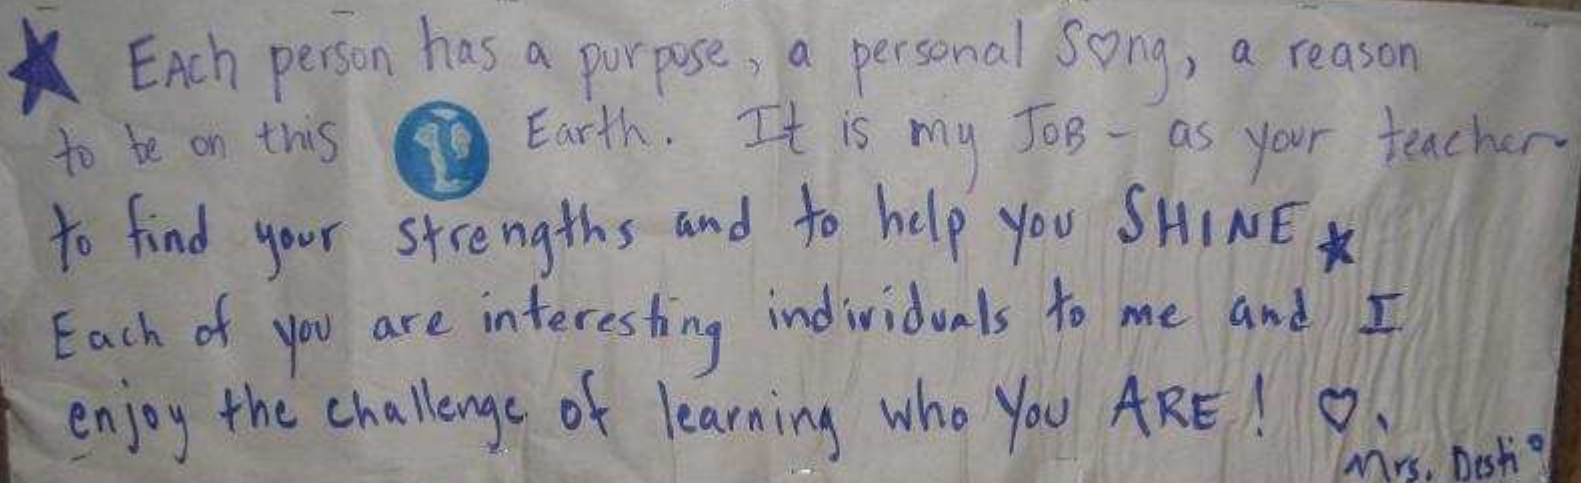 EAch person has a purpose, a personal S♡ng, a reason
to be on this Earth. It is my JOB - as your teacher
to find your strengths and to help you SHINE
Each of you are interesting individuals to me and I
enjoy the challenge of learning who You ARE! ♡,
Mrs. Desti